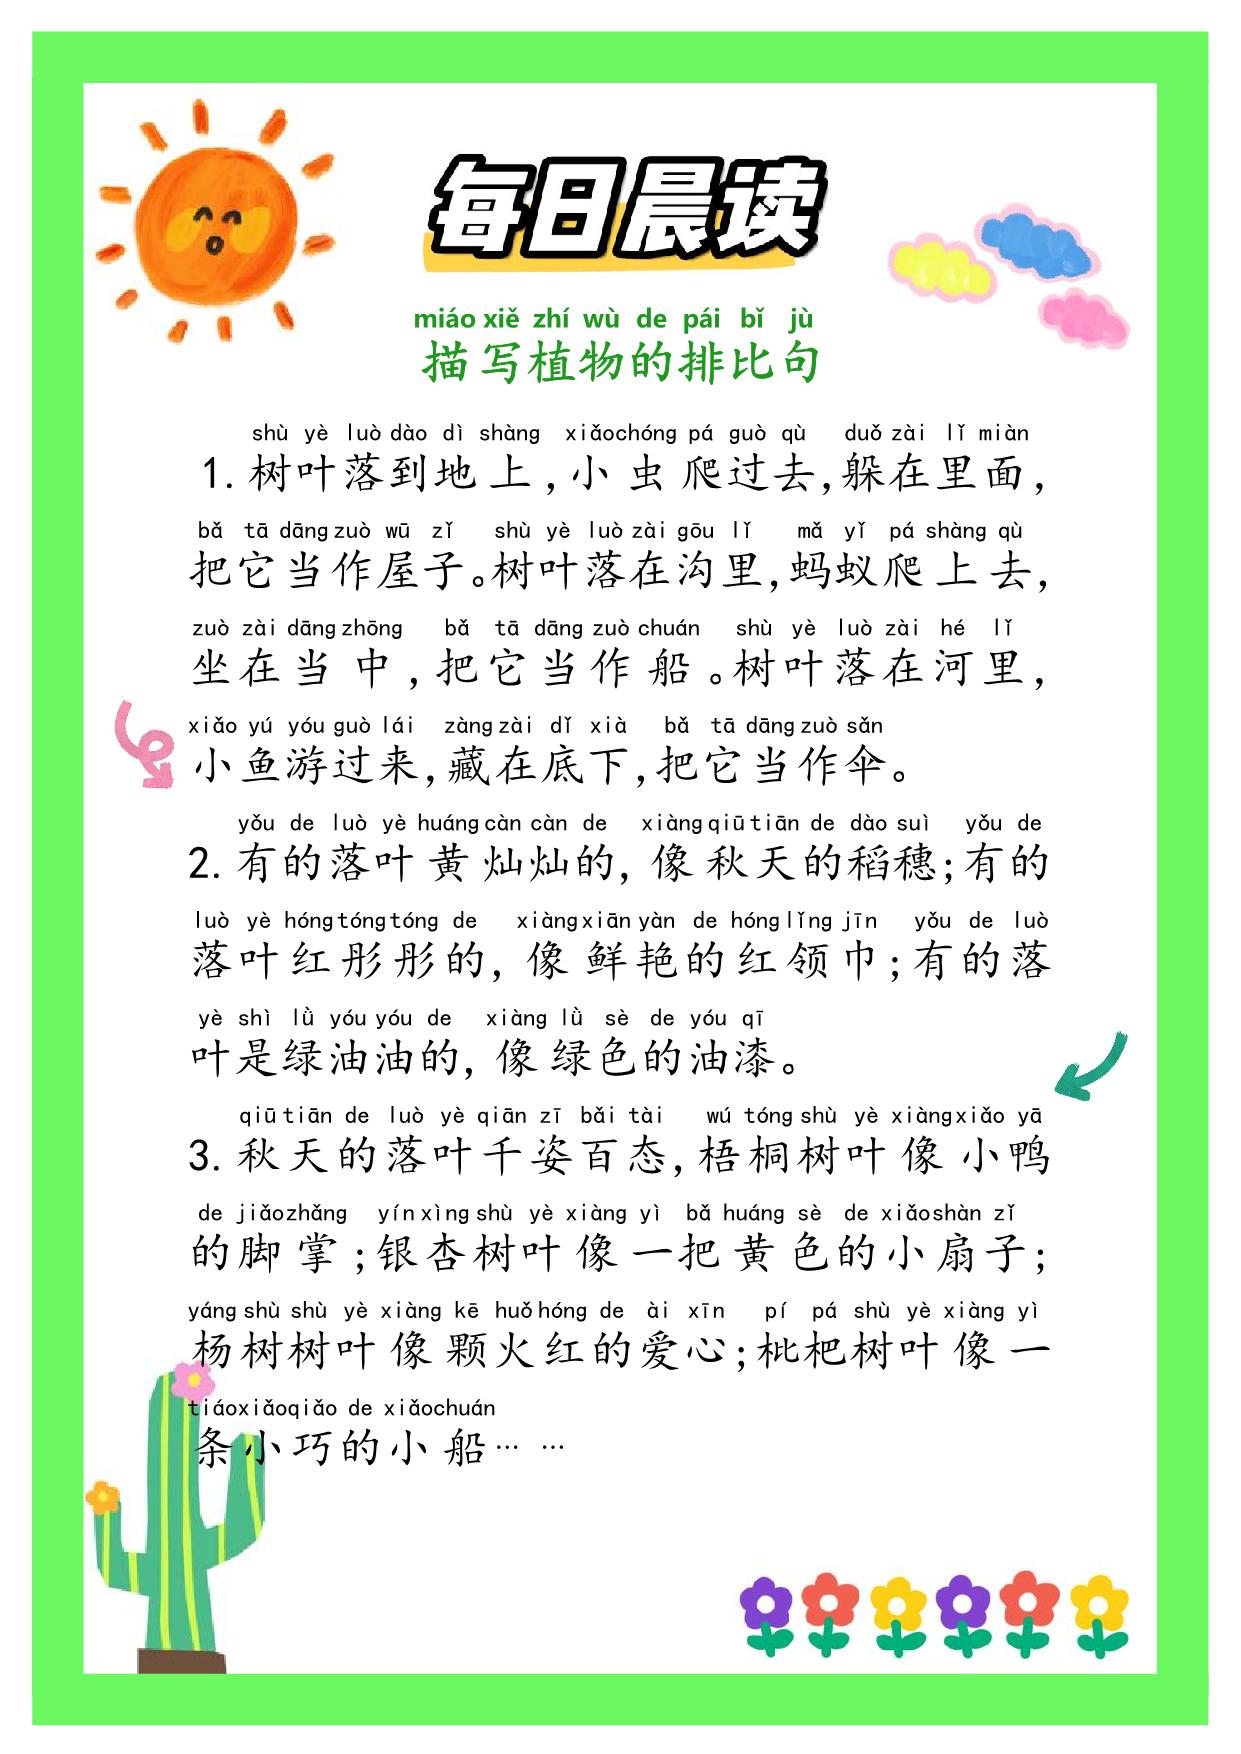 每日晨读
miáo xiě zhí wù de pái bǐ jù
描写植物的排比句
shù yè luò dào dì shàng xiǎo chóng pá guò qù duǒ zài lǐ miàn
1. 树叶落到地上,小虫爬过去,躲在里面,
bǎ tā dāng zuò wū zǐ shù yè luò zài gōu lǐ mǎ yǐ pá shàng qù
把它当作屋子。树叶落在沟里,蚂蚁爬上去,
zuò zài dāng zhōng bǎ tā dāng zuò chuán shù yè luò zài hé lǐ
坐在当中,把它当作船。树叶落在河里,
xiǎo yú yóu guò lái zàng zài dǐ xià bǎ tā dāng zuò sǎn
小鱼游过来,藏在底下,把它当作伞。
yǒu de luò yè huáng càn càn de xiàng qiū tiān de dào suì yǒu de
2. 有的落叶黄灿灿的,像秋天的稻穗;有的
luò yè hóng tóng tóng de xiàng xiān yàn de hóng lǐng jīn yǒu de luò
落叶红彤彤的,像鲜艳的红领巾;有的落
yè shì lǜ yóu yóu de xiàng lǜ sè de yóu qī
叶是绿油油的,像绿色的油漆。
qiū tiān de luò yè qiān zī bǎi tài wú tóng shù yè xiàng xiǎo yā
3. 秋天的落叶千姿百态,梧桐树叶像小鸭
de jiǎo zhǎng yín xìng shù yè xiàng yì bǎ huáng sè de xiǎo shàn zǐ
的脚掌;银杏树叶像一把黄色的小扇子;
yáng shù shù yè xiàng kē huǒ hóng de ài xīn pí pá shù yè xiàng yì
杨树树叶像颗火红的爱心;枇杷树叶像一
tiáo xiǎo qiǎo de xiǎo chuán
条小巧的小船… …